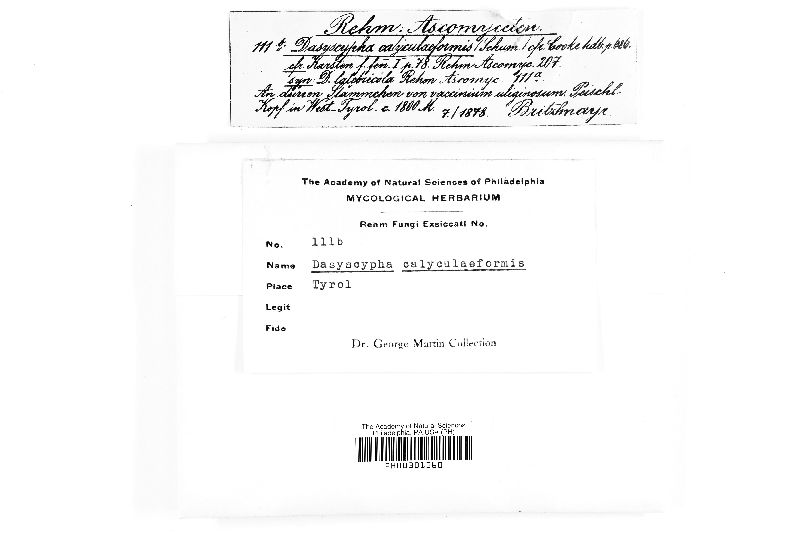 Rehm: Ascomyceten.
111 b. Dasyscypha calyculaeformis (Schum) cfr. Cooke hdb. p. 686.
cfr. Karsten f. fen. I p. 78. Rehm Ascomyc. 207.
syn. D. Rehm Ascomyc. 111a.
An dürren Stämmchen von vaccinium uliginosum.
Kopf in West-Tyrol. c. 1800 M. 7/1878. Britzlmayr
The Academy of Natural Sciences of Philadelphia
MYCOLOGICAL HERBARIUM
Rehm Fungi Exsiccati No.
No. 111b
Name Dasyscypha calyculaeformis
Place Tyrol
Legit
Fide
Dr. George Martin Collection
The Academy of Natural Sciences
Philadelphia, PA USA (PH)